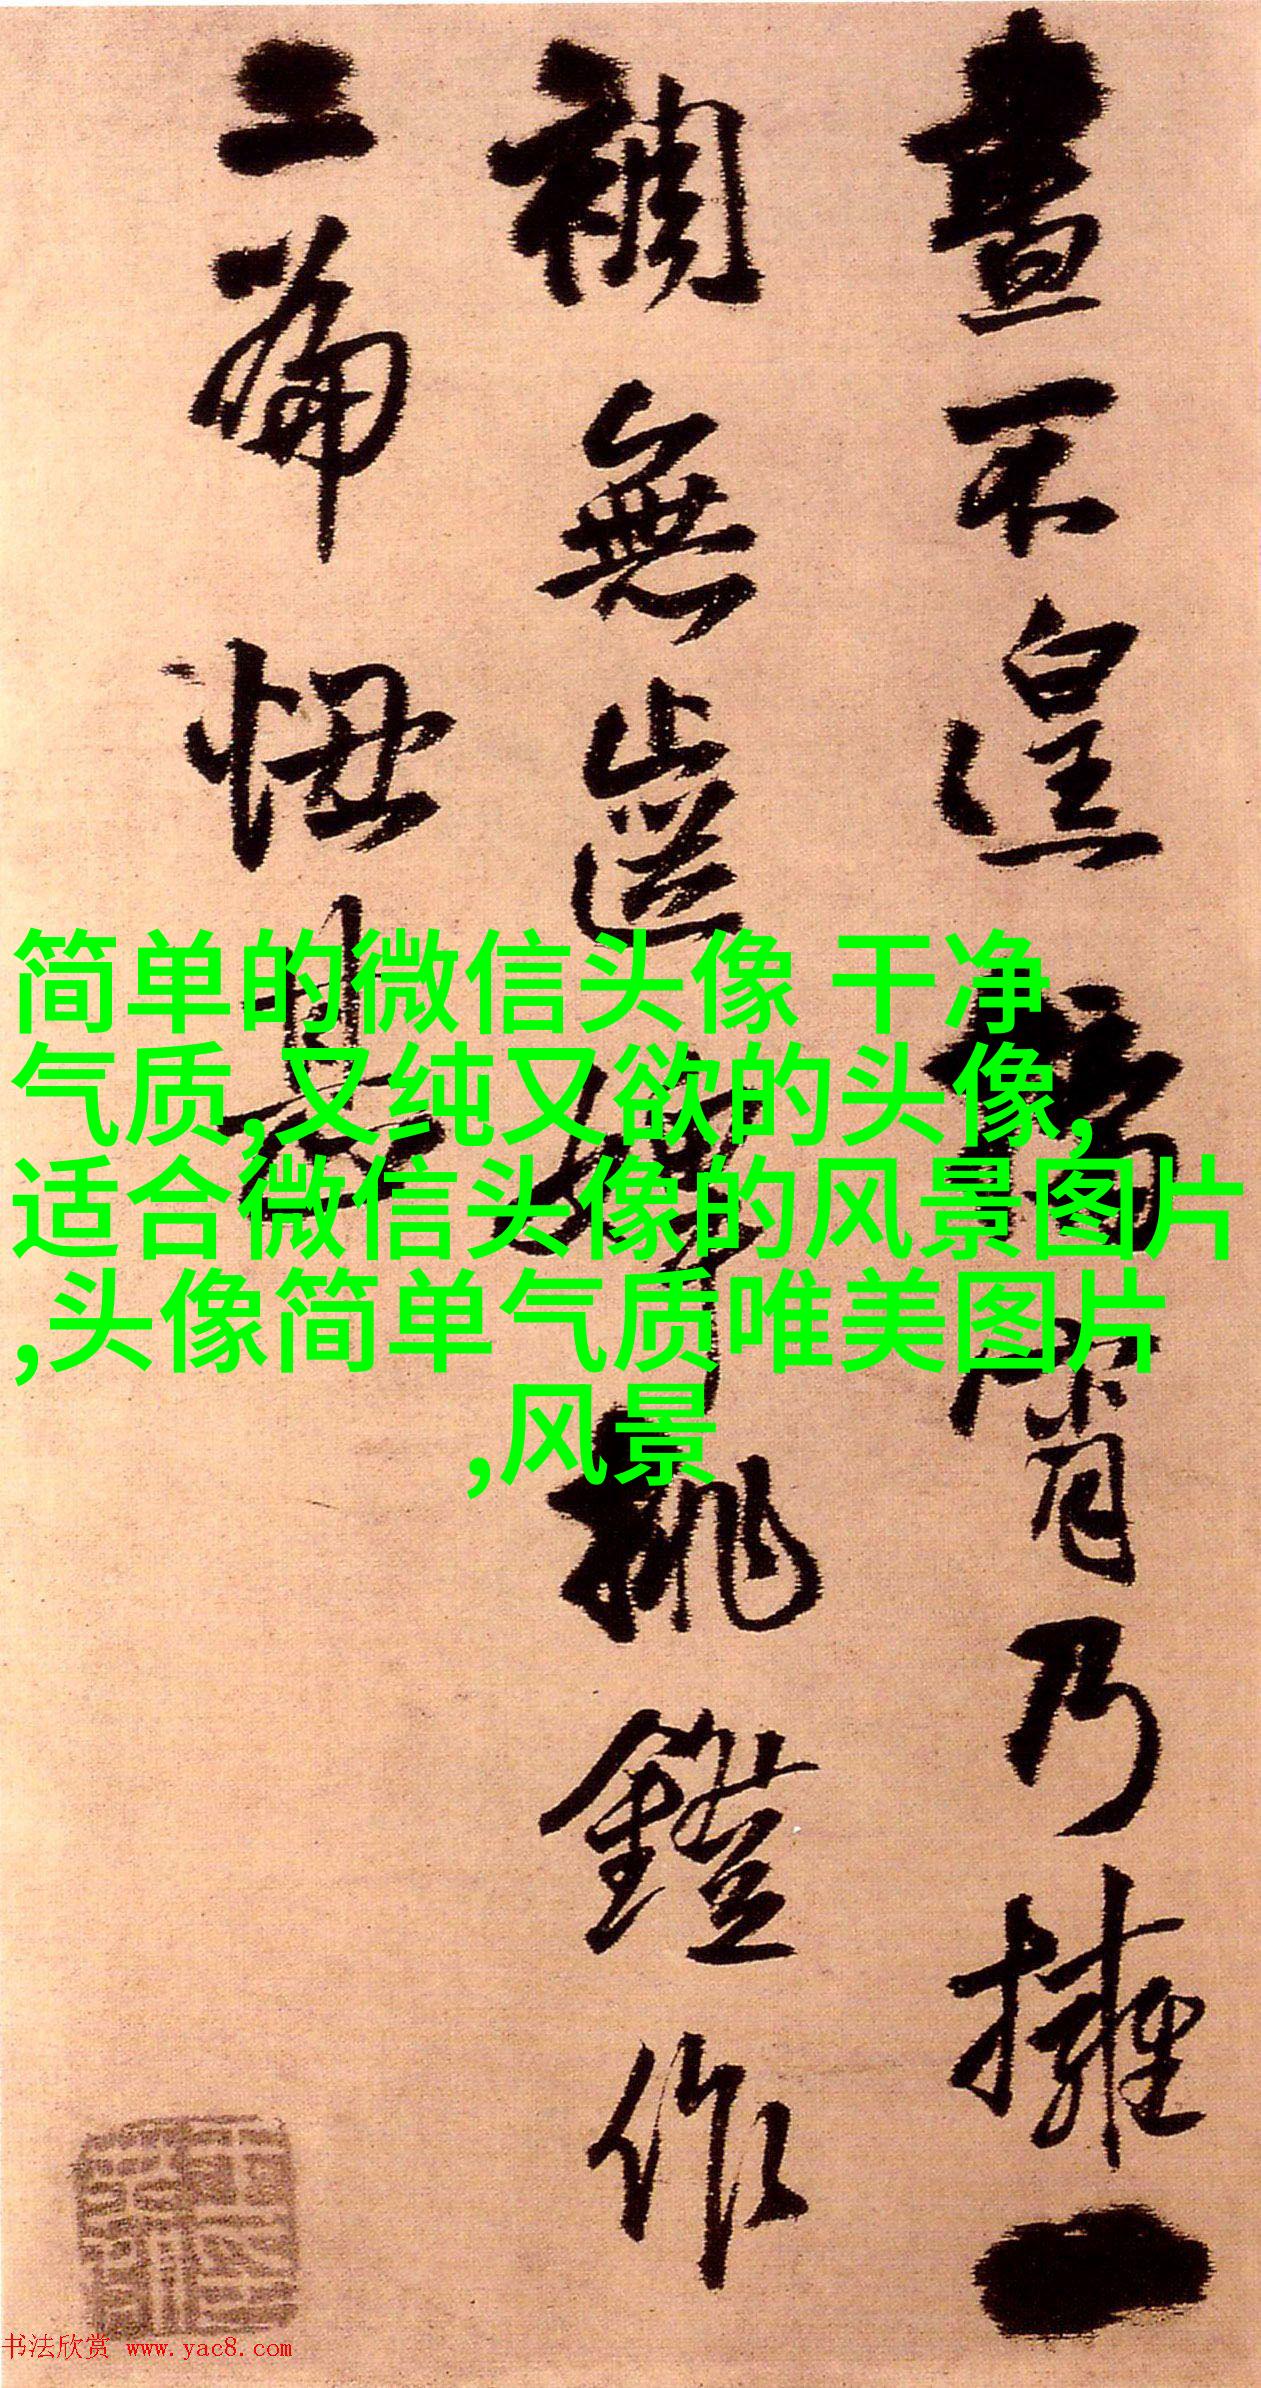 晝不遑宵乃擁一
裯無從婢挑鐙作
篇甚
简单的微信头像 干净
气质,又纯又欲的头像,
适合微信头像的风景图片
,头像简单气质唯美图片
,风景
书法欣赏 www.yac8.com